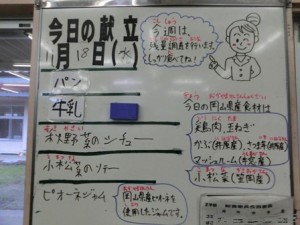 今日の献立
1月18日(水)
今週は、
残量調査を行います。
しっかり食べてね！
パン
牛乳
秋野菜のシチュー
小松菜のソテー
ピオーネジャム
今日の岡山県産食材は
鶏肉、玉ねぎ
かぶ(井原産)、さつま芋(井原産)
マッシュルーム(牛窓産)
小松菜(笠岡産)
岡山県産ピオーネを
使用したジャムです。